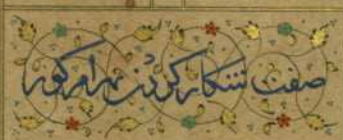 صفت شکار کردن بهرام کور